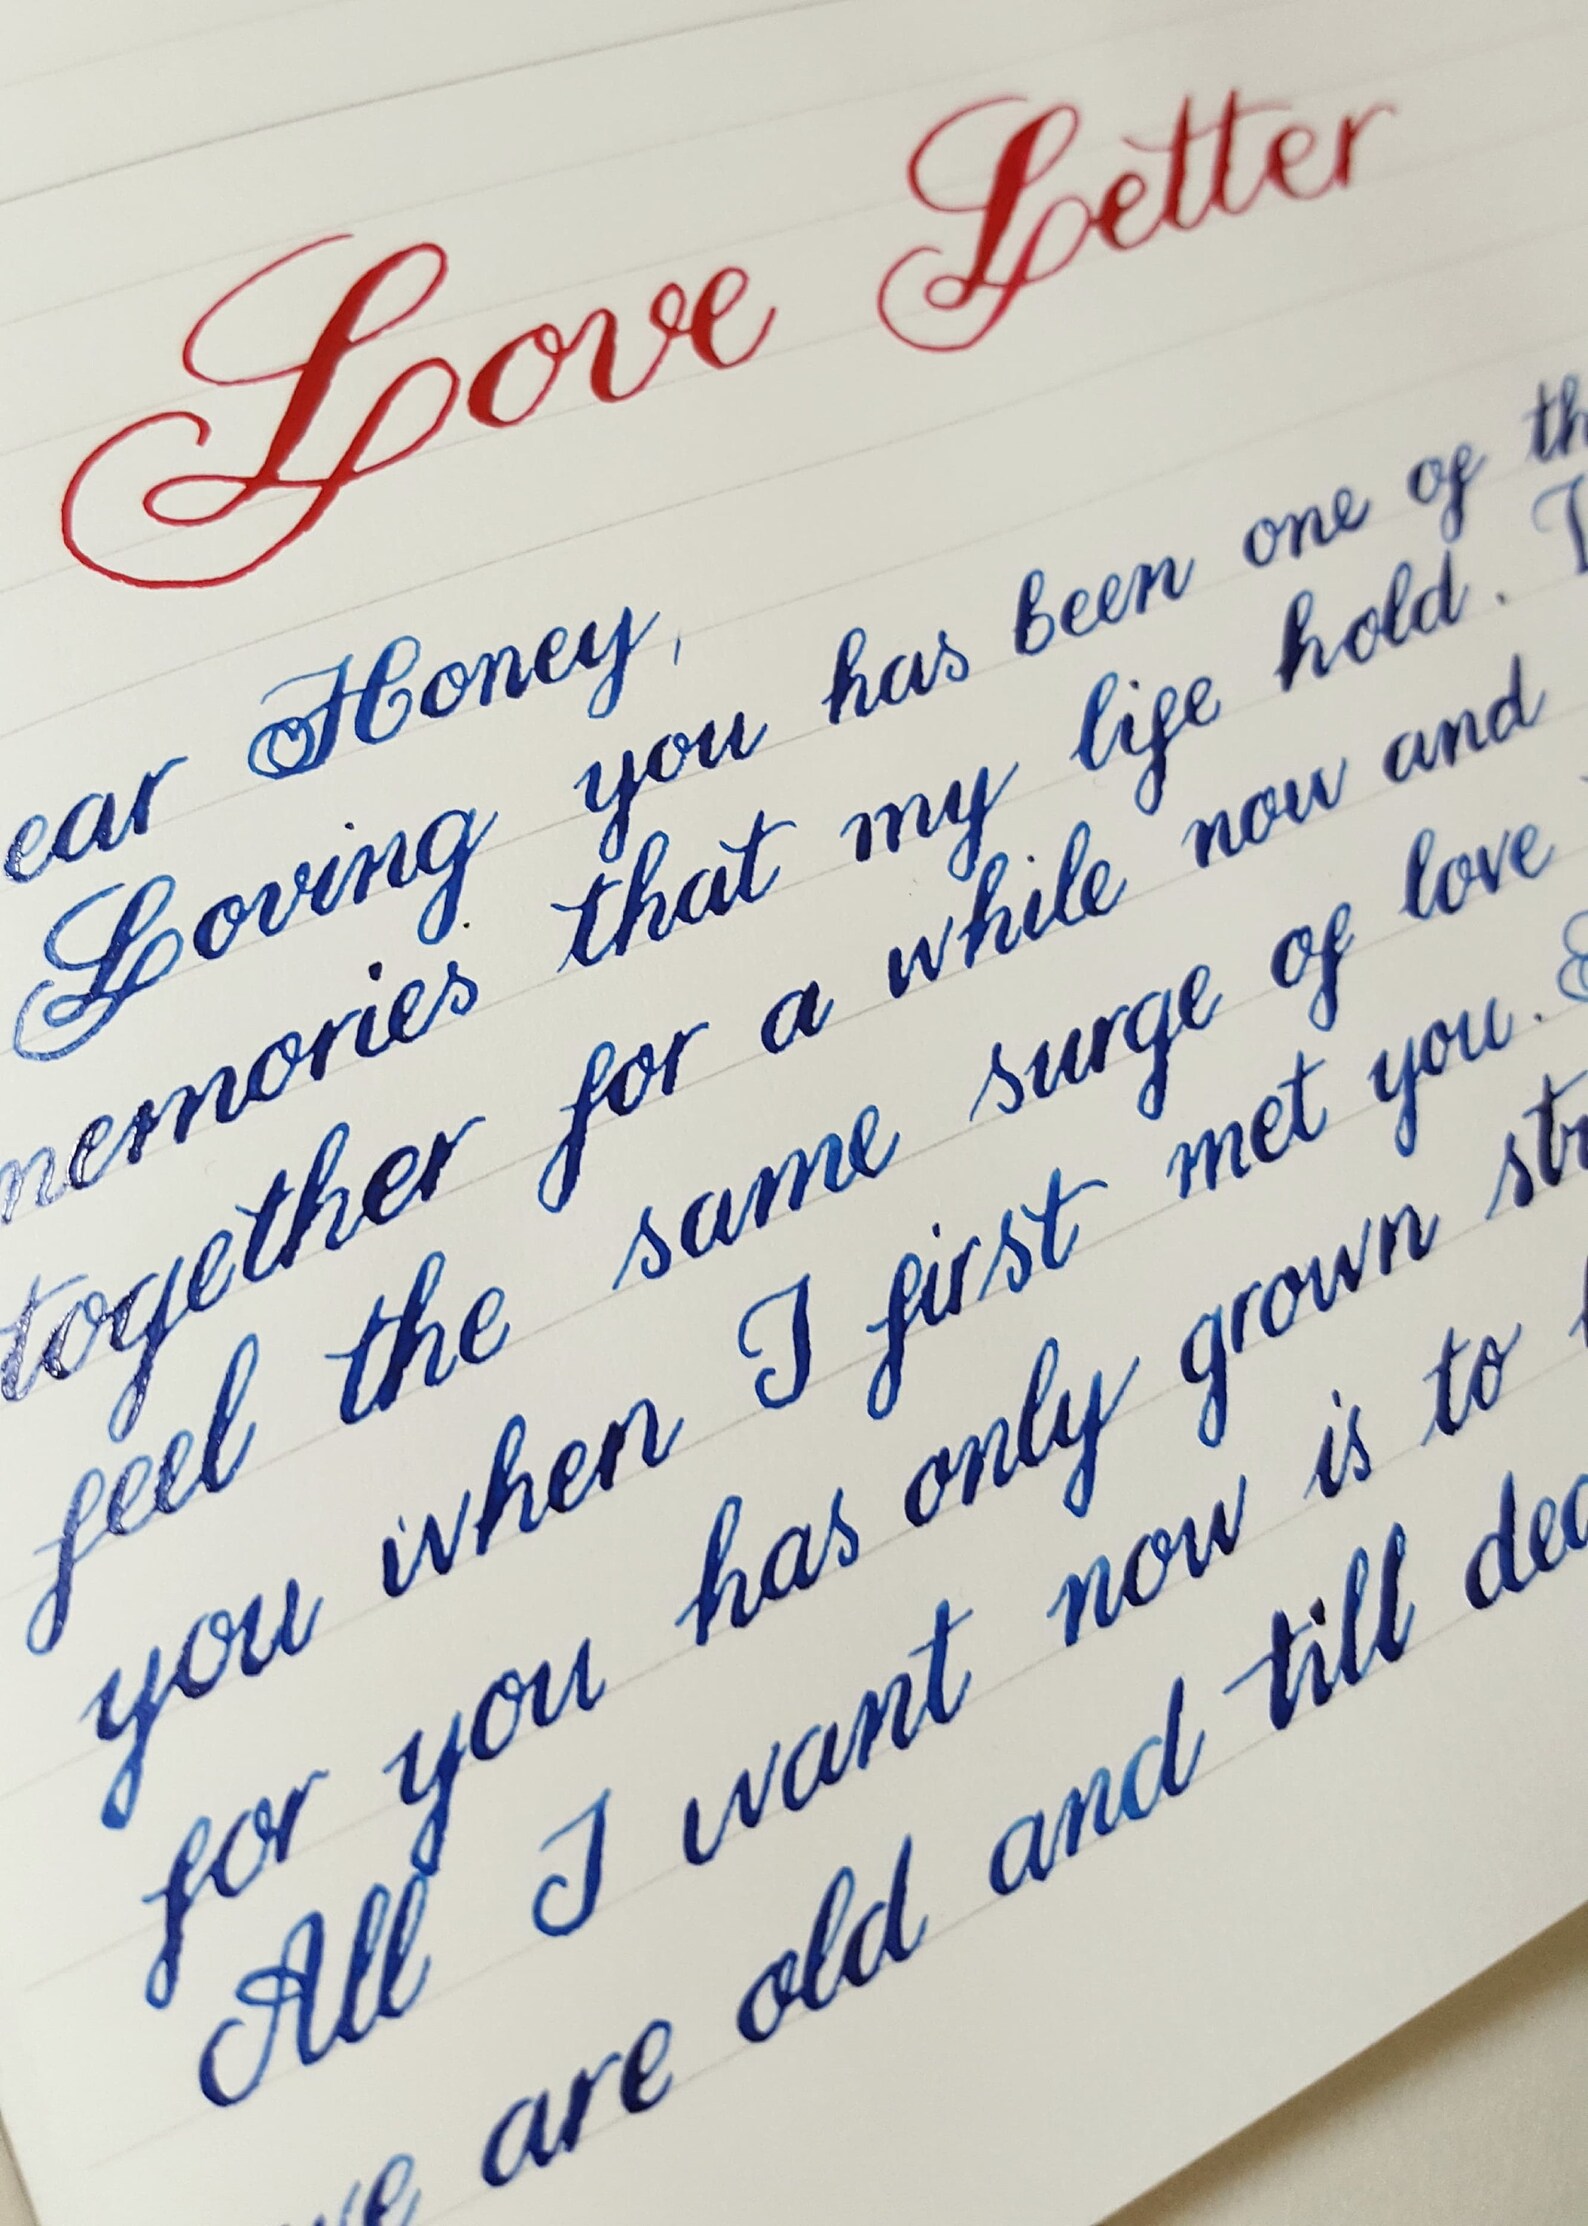 Love Letter
ear Honey,
Loving you has been one of th
memories that my life hold.
together for a while now and
feel the same surge of love
you when I first met you.
for you has only grown str
All I want now is to
we are old and till dea